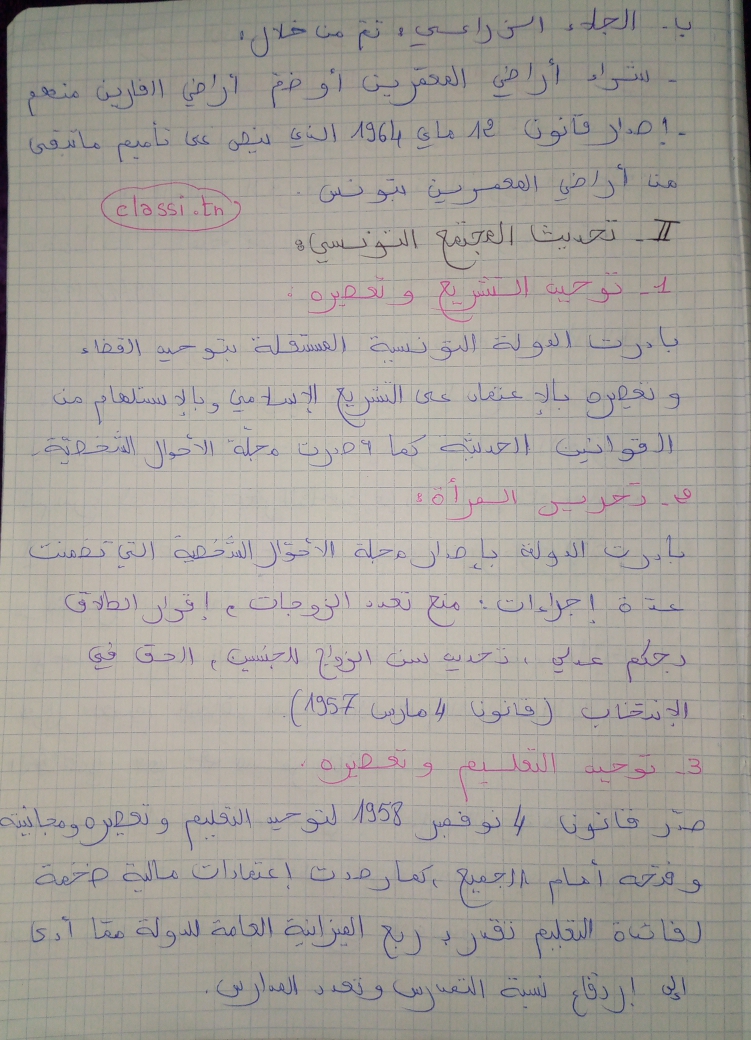 ب- الجلاء الزراعي: تم من خلال:
- شراء أراضي المعمّرين أو ضمّ أراضي الفارين منهم
- إصدار قانون 12 ماي 1964 الذي ينص على تأميم ما تبقى
من أراضي المعمرين بتونس.
classi.tn
II- تحديث المجتمع التونسي:
1- توحيد التشريع وتعصيره:
بادرت الدولة التونسية المستقلة بتوحيد القضاء
وتعصيره بالإعتماد على التشريع الإسلامي وبالإستلهام من
القوانين الحديثة كما صدرت مجلّة الأحوال الشّخصيّة.
2- تحرير المرأة:
بادرت الدولة بإصدار مجلة الأحوال الشّخصية التي تضمنت
عدة إجراءات: منع تعدد الزوجات، إقرار الطلاق
بحكم عدلي، تحديد سن الزواج للجنسين، الحق في
الإنتخاب (قانون 4 مارس 1957).
3- توحيد التعليم وتعصيره.
صدر قانون 4 نوفمبر 1958 لتوحيد التعليم وتعصيره ومجانيته
وفتحه أمام الجميع، كما رصدت إعتمادات مالية ضخمة
لفائدة التعليم تقدر بـ ربع الميزانية العامة للدولة ممّا أدى
إلى إرتفاع نسبة التمدرس وتعدد المدارس.